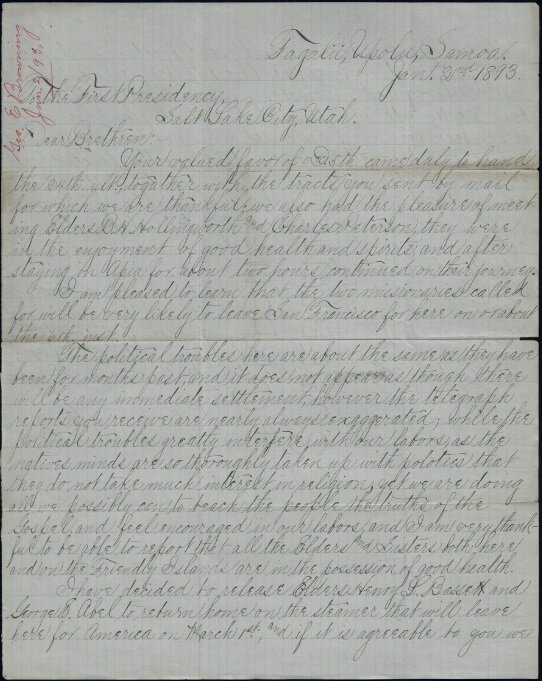 Geo. E. Browning
Jan 2, 93.
Fagalii, Upolu, Samoa.
Jan. 2nd 1893.
The First Presidency,
Salt Lake City, Utah.
Dear Brethren:-
Your valued favor of Dec 5th came duly to hand
the 24th ult, together with the tracts you sent by mail
for which we are thankful, we also had the pleasure of meet-
ing Elders D.H. Hollingworth and Charles Peterson, they were
in the enjoyment of good health and spirits, and after
staying in Apia for about two hours, continued on their journey.
I am pleased to learn that the two missionaries called
for will be very likely to leave San Francisco for here on or about
the 6th inst.
The political troubles here are about the same as they have
been for months past, and it does not appear as though there
will be any immediate settlement, however the telegraph
reports you receive are nearly always exaggerated, while the
political troubles greatly interfere with our labors, as the
natives minds are so thoroughly taken up with polotics that
they do not take much interest in religion, yet we are doing
all we possibly can to teach the people the truths of the
Gospel, and feel encouraged in our labors, and I am very thank-
ful to be able to report that all the Elders and Sisters both here,
and on the Friendly Islands are in the possession of good health.
I have decided to release Elders Henry L. Bassett and
George E. Abel to return home on the steamer that will leave
here for America on March 1st, and if it is agreeable to you we